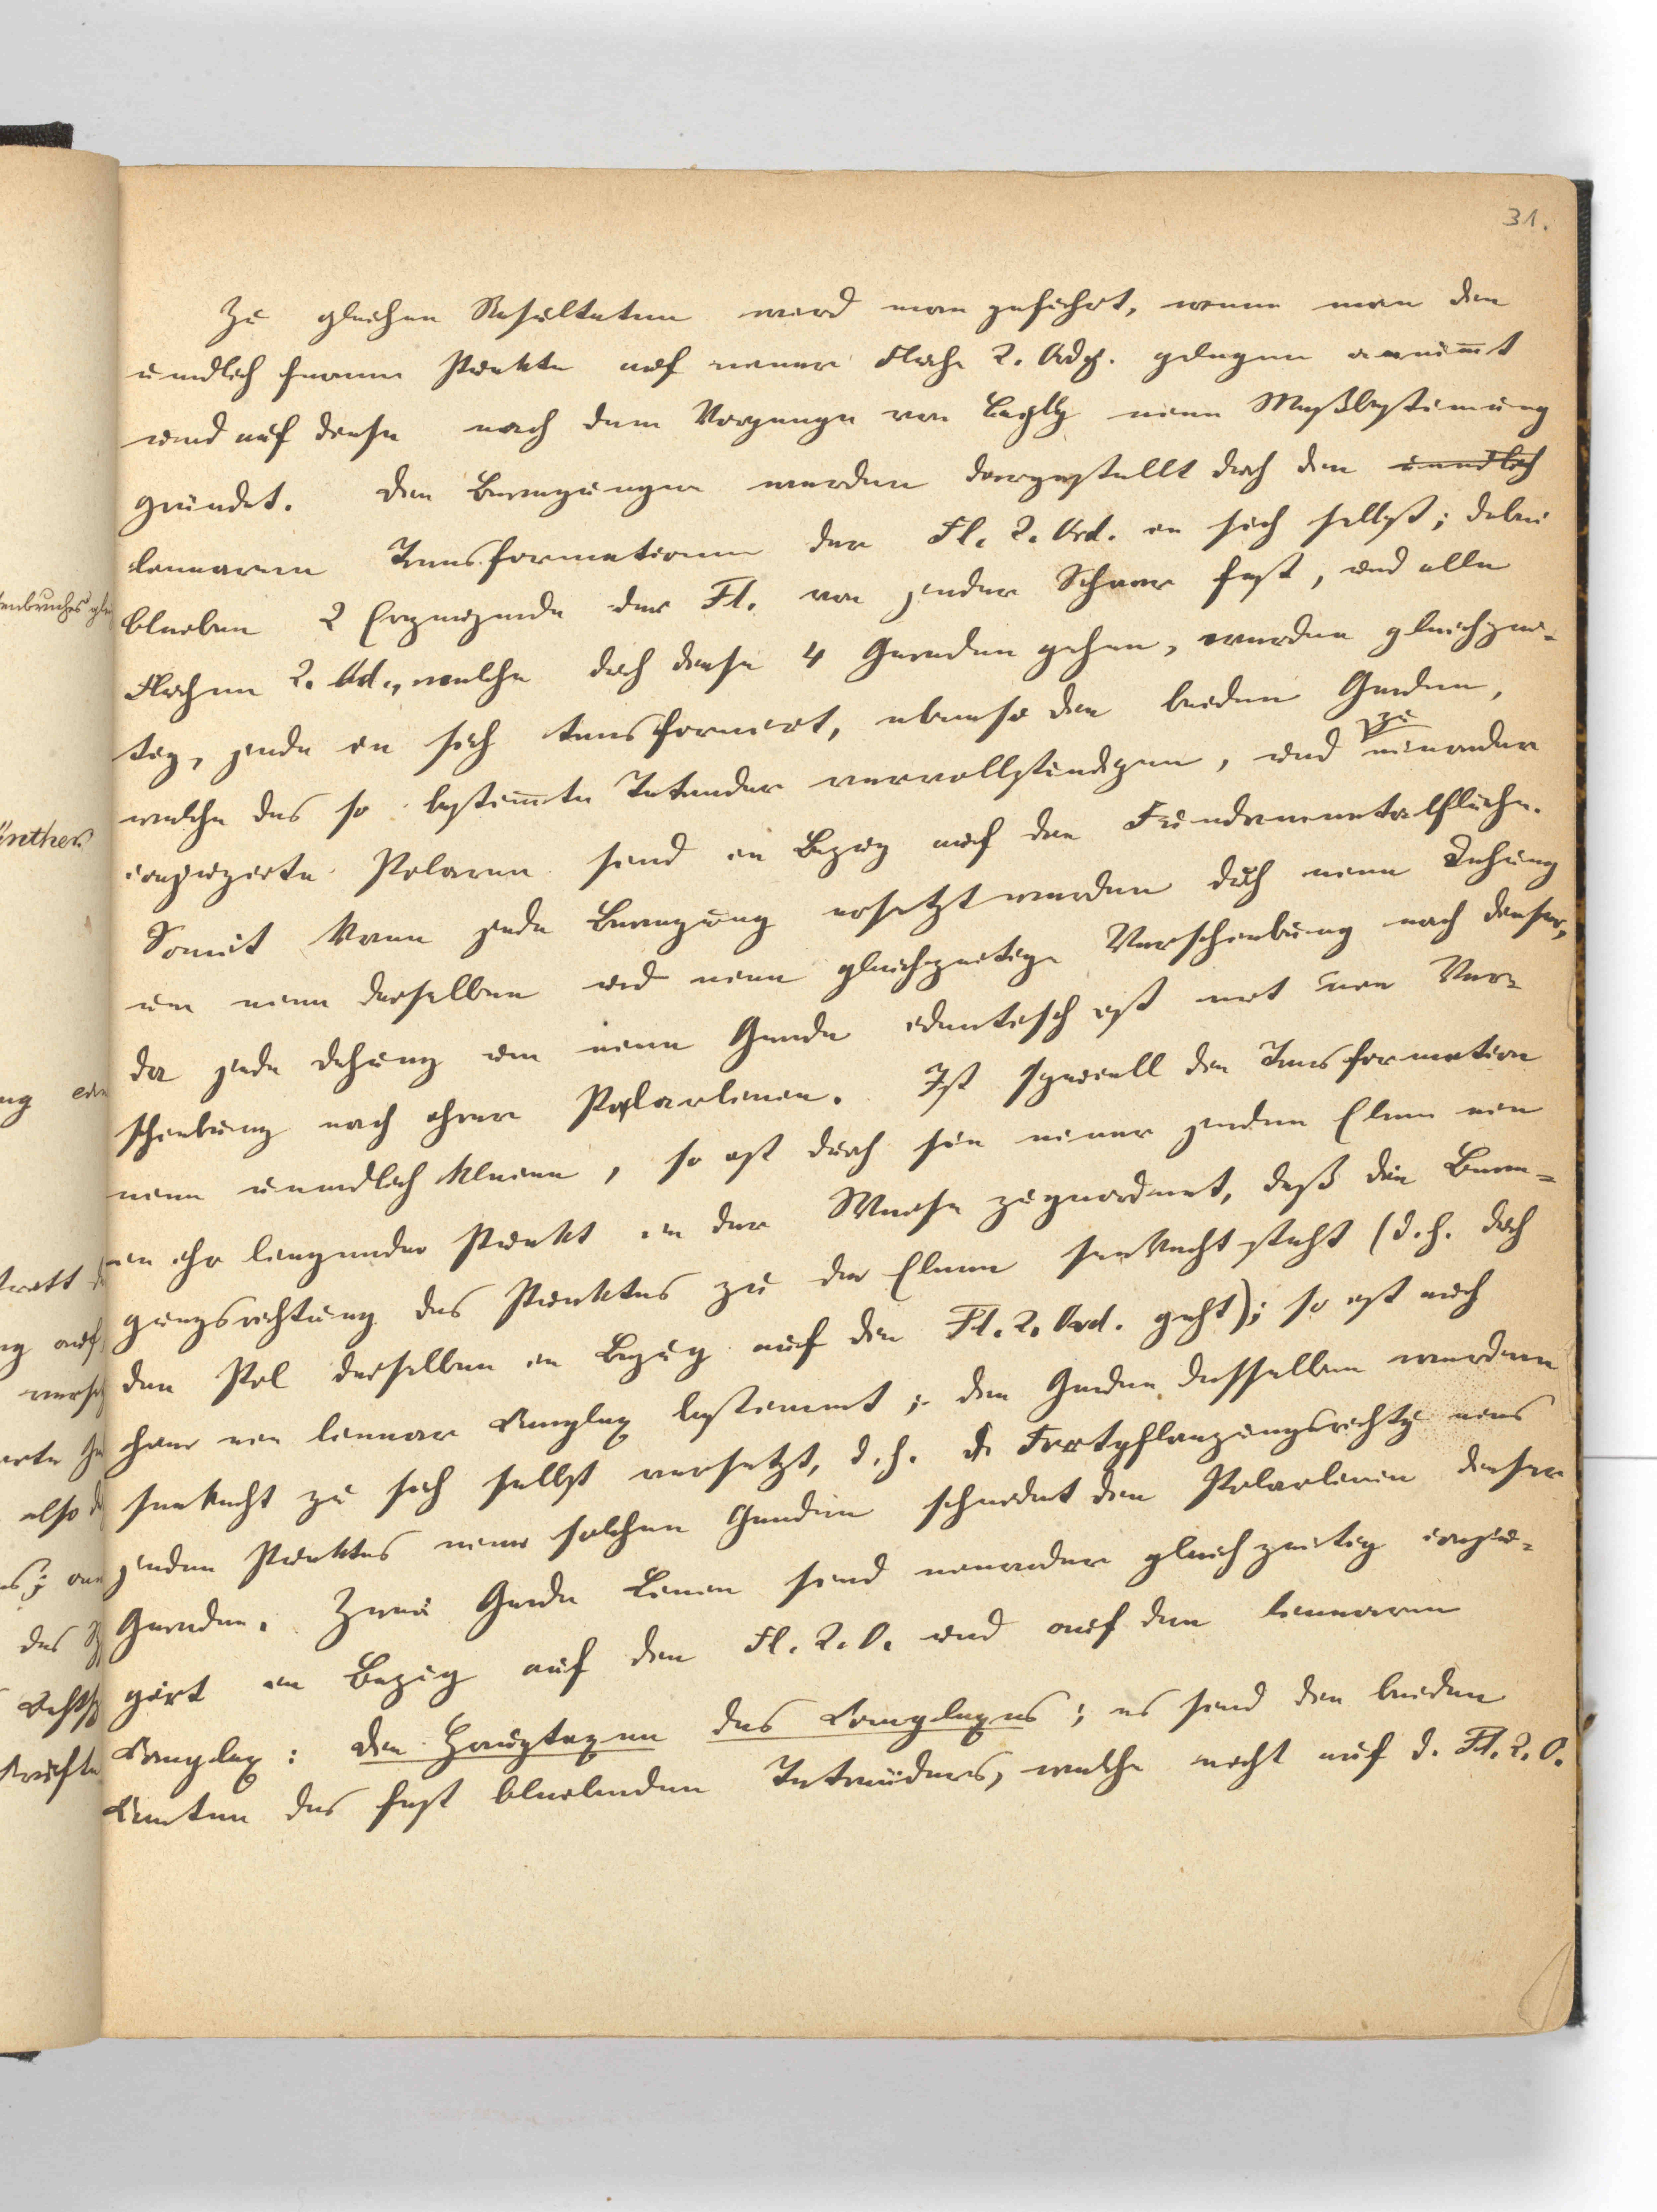 31.
Zu gleichen Resultaten wird man geführt, wenn man die
unendlich fernen Punkte auf einer Fläche 2. Ordg. gelegen annimmt
und auf diese nach dem Vorgange von Cayley eine Maßbestimung
gründet. Die Bewegungen werden dargestellt durch die unendlich
linearen Transformationen der Fl. 2. Ord. in sich selbst; dabei
bleiben 2 Erzeugende der Fl. von jeder Schaar fest, und alle
Flächen 2. Od., welche durch diese 4 Geraden gehen, werden gleichzei-
tig, jede in sich transformiert, ebenso die beiden Geraden,
welche das so bestimte Tetraeder vervollständigen, und zu einander
conjugierte Polaren sind in Bezug auf die Fundamentalfläche.
Somit kann jede Bewegung ersetzt werden durch eine Drehung
um eine derselben und eine gleichzeitige Verschiebung nach dieser,
da jede Drehung um eine Gerade identisch ist mit einer Ver-
schiebung nach ihrer Polarlinien. Ist speciell die Transformation
eine unendlich kleine, so ist durch sie einer jeden Ebene ein
in ihr liegender Punkt in der Weise zugeordnet, daß die Bewe-
gungsrichtung des Punktes zu der Ebene senkrecht steht (d.h. durch
den Pol derselben in Bezug auf die Fl. 2. Ord. geht); so ist auch
hier ein linear Complex bestimmt; die Geraden desselben werden
senkrecht zu sich selbst versetzt, d.h. die Fortpflanzungsrichtg eines
jeden Punktes einer solchen Geraden schneidet die Polarlinien dieser
Geraden. Zwei Gerade Linien sind einander gleichzeitig conju-
girt in Bezug auf die Fl. 2. O. und auf den linearen
Complex: die Hauptaxen des Complexes; es sind die beiden
Kanten des fest bleibenden Tetraeders, welche nicht auf d. Fl. 2. O.